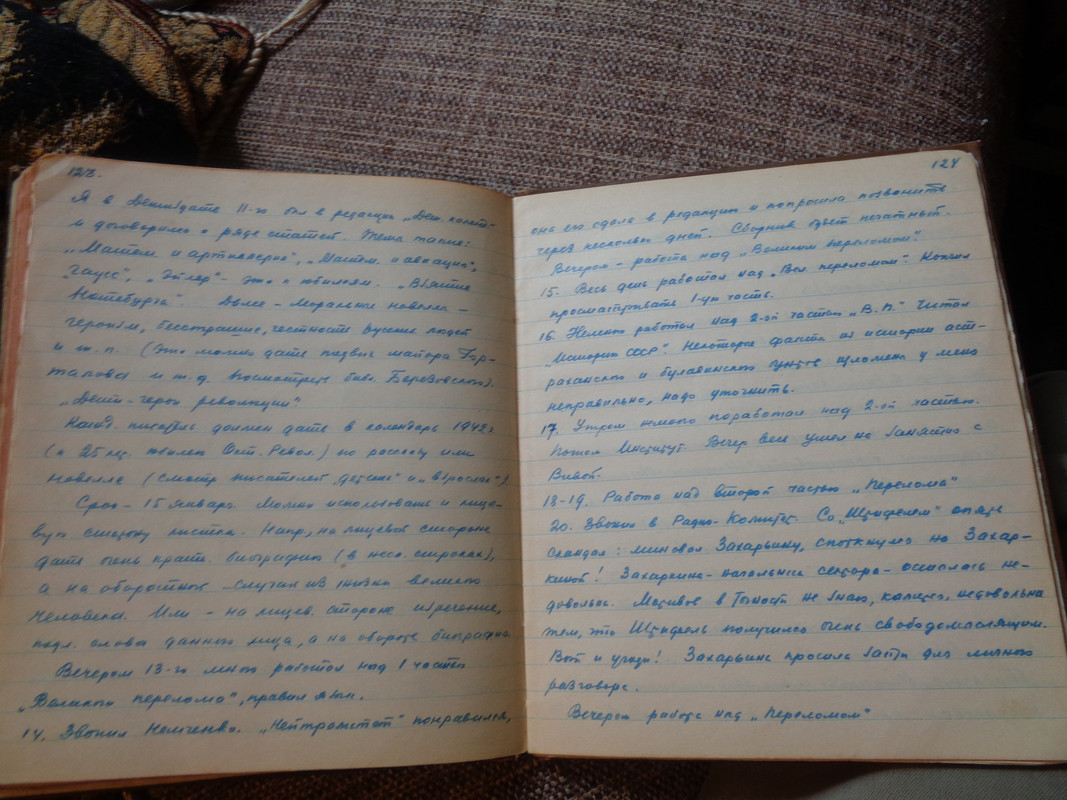 123.
Я в Детиздате 11-го был в редакции „Дет. календ.“
и договорился о ряде статей. Темы такие:
„Матем. и артиллерия“, „Матем. и авиация“,
„Гаусс“, „Эйлер“ – это к юбилеям. „Взятие
Нотебурга“. Далее – Моральные новеллы –
героизм, бесстрашие, честность русских людей
и т. п. (Это можно дать подвиг майора Гор-
талова и т. д. Посмотреть библ. Березовского).
„Дети – герои революции“.
Кажд. писатель должен дать в календарь 1942 г
(к 25 лет. юбилею Окт. Револ.) по рассказу или
новелле (смотр писателей „детских“ и „взрослых“).
Срок – 15 января. Можно использовать и лице-
вую сторону листка. Напр., на лицевой стороне
дать очень кратк. биографию (в неск. строках),
а на оборотной – случай из жизни великого
человека. Или – на лицев. стороне изречение,
подл. слова данного лица, а на обороте биография
Вечером 13-го много работал над 1 частью
„Великого перелома“, правил язык.
14. Звонил Немченко. „Нейтрализат“ понравился,
124
она его сдала в редакцию и попросила позвонить
через несколько дней. Сборник будет печатный.
Вечером – работа над „Великим переломом“.
15. Весь день работал над „Вел. переломом“. Кончил
просматривать 1-ую часть.
16. Немного работал над 2-ой частью „В. П.“ Читал
„Историю СССР“. Некоторые факты из истории аст-
раханского и булавинского бунтов изложены у меня
неправильно, надо уточнить.
17. Утром немного поработал над 2-ой частью.
Потом Институт. Вечер весь ушел на занятия с
Вивой.
18-19. Работа над второй частью „Перелома“
20. Звонил в Радио-Комитет. Со „Шпинделем“ опять
скандал: миновал Захарьину, споткнулся на Захар-
киной! Захаркина – начальник сектора – осталась не-
довольна. Мотивов в точности не знаю, кажется, недовольна
тем, что Шпиндель получился очень свободомыслящим.
Вот и угоди! Захарьина просила зайти для личного
разговора.
Вечером работа над „Переломом“